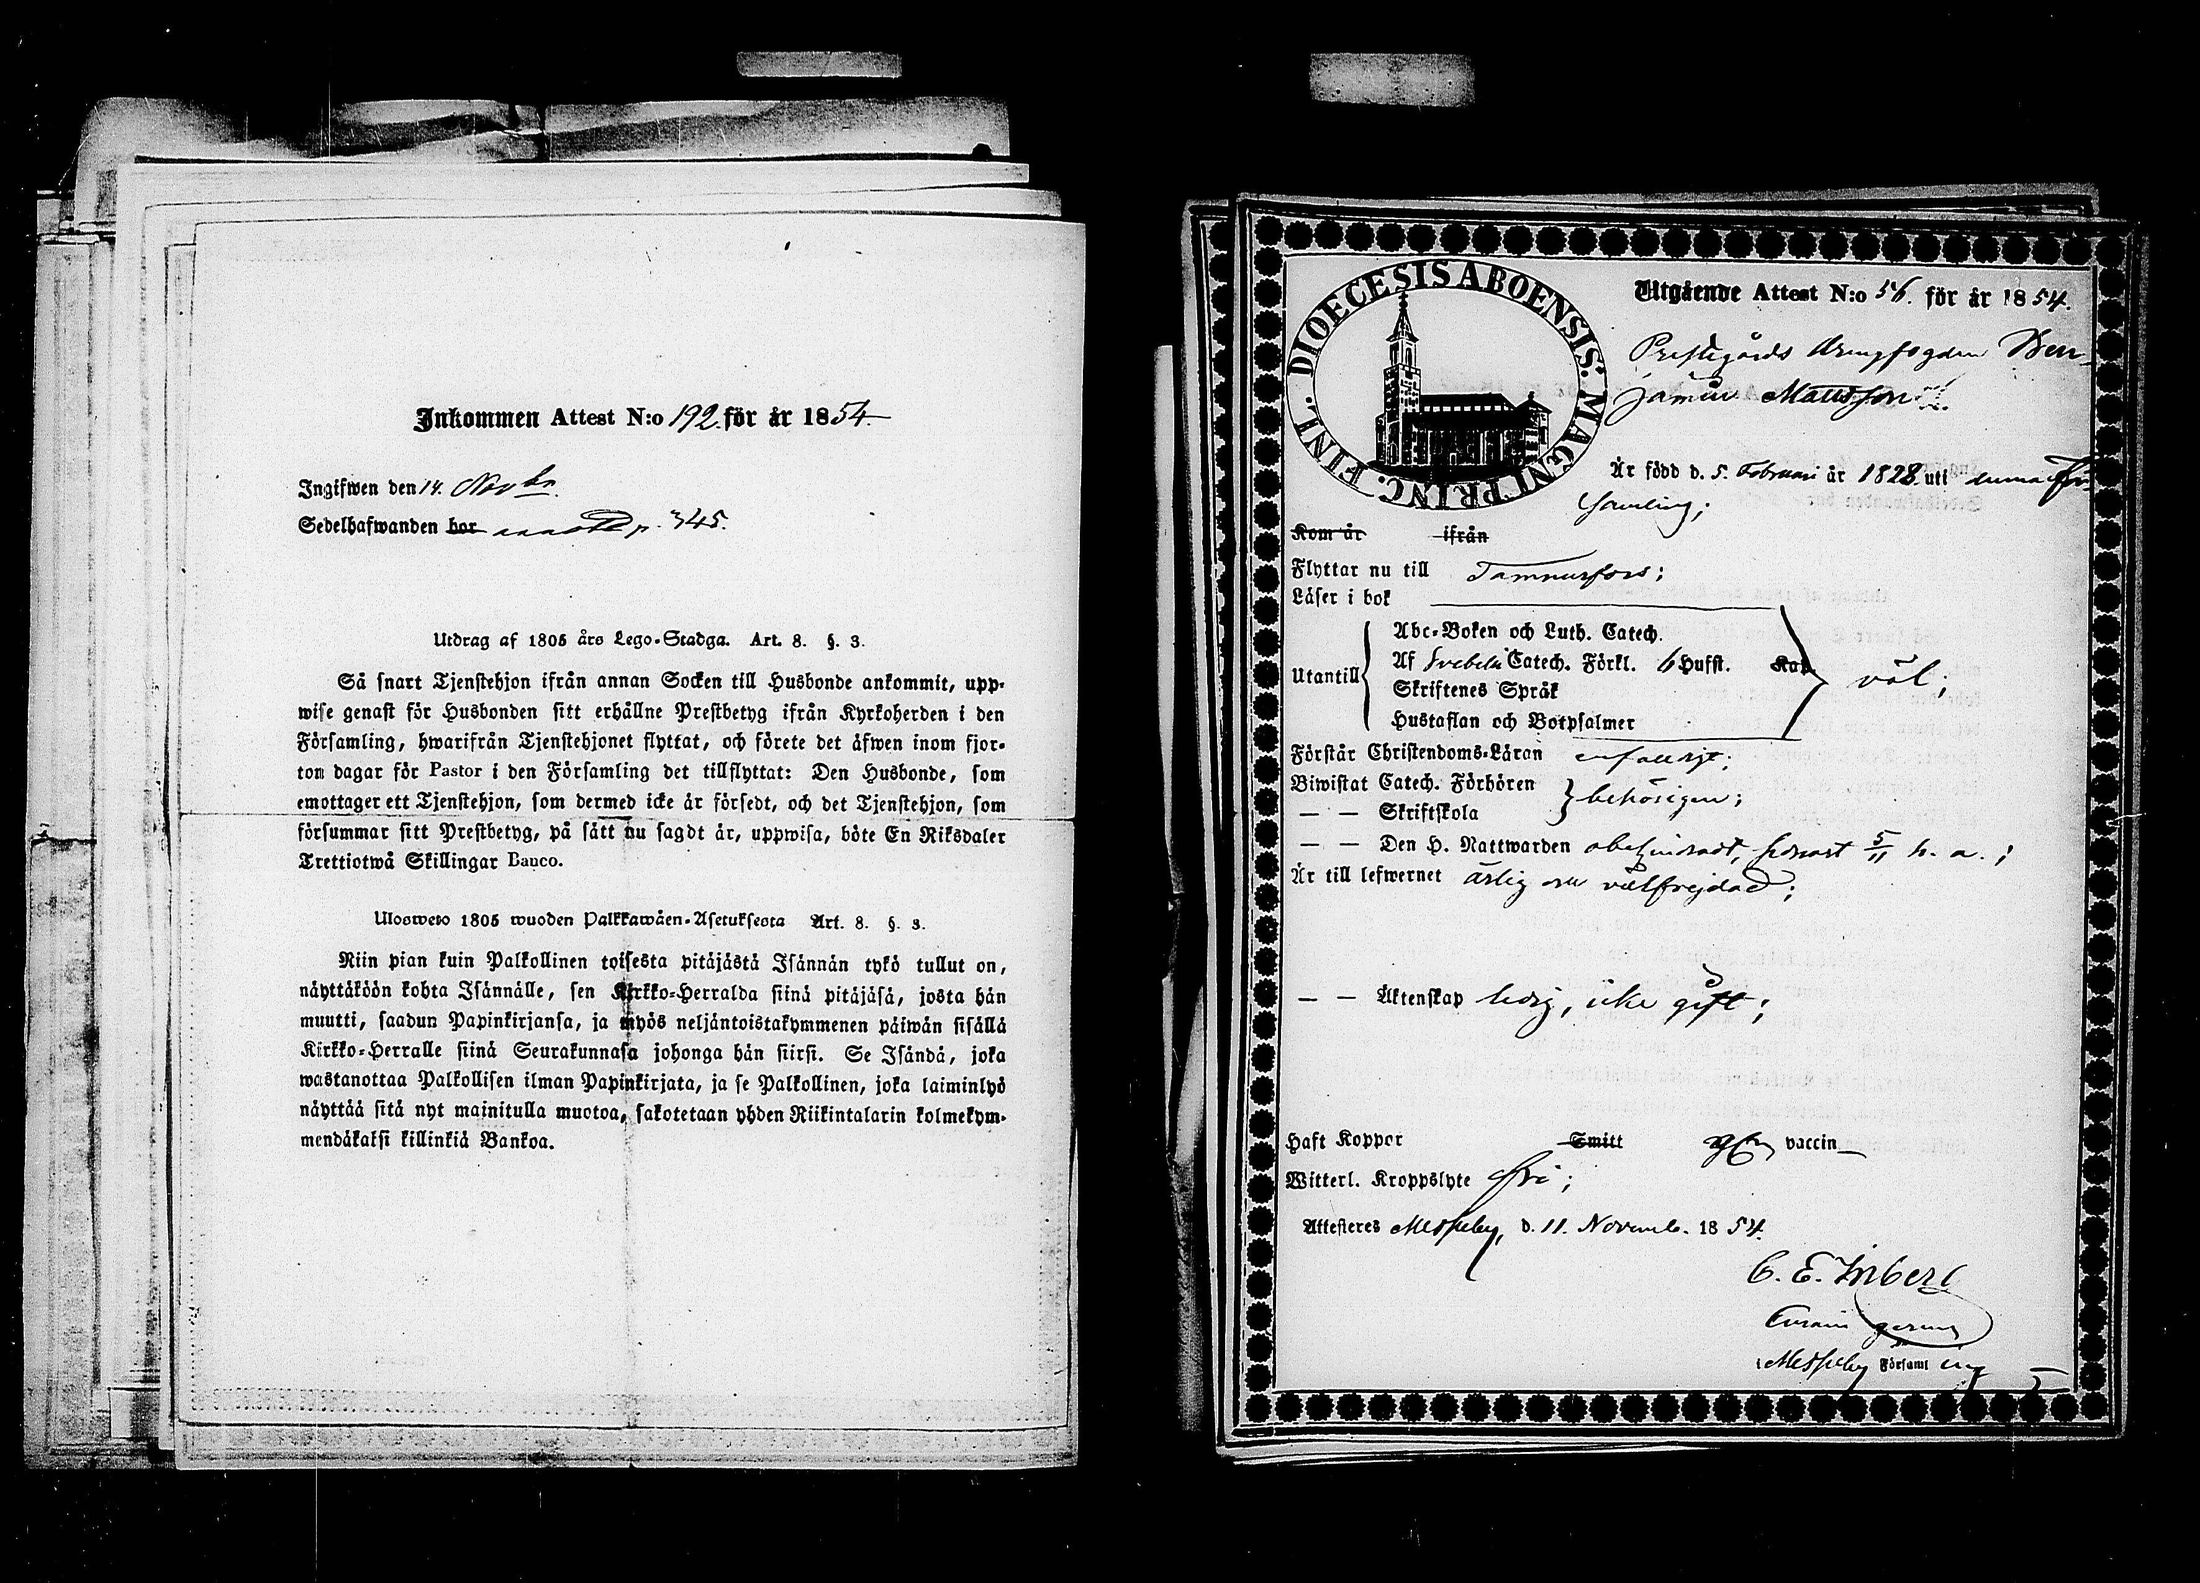 Inkommen Attest N:o 192. för år 1854
Ingifwen den 14. Novbr.
Sedelhafwanden bor p. 345.
Utdrag af 1805 års Lego-Stadga. Art. 8. §. 3.
Så snart Tjenstehjon ifrån annan Socken till Husbonde ankommit, upp-
wise genast för Husbonden sitt erhållne Prestbetyg ifrån Kyrkoherden i den
Församling, hwarifrån Tjenstehjonet flyttat, och förete det äfwen inom fjor-
ton dagar för Pastor i den Församling det tillflyttat: Den Husbonde, som
emottager ett Tjenstehjon, som dermed icke är försedt, och det Tjenstehjon, som
försummar sitt Prestbetyg, på sätt nu sagdt är, uppwisa, böte En Riksdaler
Trettiotwå Skillingar Banco.
Uloswets 1805 wuoden Palkkawäen-Asetuksesta Art. 8. §. 3.
Niin pian kuin Palkollinen toisesta pitäjästä Isännän tykö tullut on,
näyttäköön kohta Isännälle, sen Kirkko-Herralda siinä pitäjäsä, josta hän
muutti, saadun Papinkirjansa, ja myös neljäntoistakymmenen päiwän sisällä
Kirkko-Herralle siinä Seurakunnasa johonga hän siirsi. Se Isändä, joka
wastanottaa Palkollisen ilman Papinkirjata, ja se Palkollinen, joka laiminlyö
näyttää sitä nyt mainitulla muotoa, sakotetaan yhden Riikintalarin kolmekym-
mendäkaksi killinkiä Bankoa.
DIOECESIS ABOENSIS. MAGNI PRINC. FINL.
Utgående Attest N:o 56. för år 1854.
Prestegårds Drengfogden Ben-
jamin Mattsson
Är född d. 5. Februari år 1828 uti denna För-
samling;
Kom år ifrån
Flyttar nu till Tammerfors;
Läser i bok
Abc-Boken och Luth. Catech.
Utantill Af Svebelii Catech. Förkl. 6 Hufst. Kap. väl;
Skriftenes Språk
Hustaflan och Botpsalmer
Förstår Christendoms-Läran enfaldigt;
Biwistat Catech. Förhören behörigen;
— — Skriftskola
— — Den H. Nattwarden obehindradt, senast 5/11 h. a.;
Är till lefwernet ärlig och välfrejdad;
— — Äktenskap ledig, icke gift;
Haft Koppor Smitt gm vaccin
Witterl. Kroppslyte fri;
Attesteres Messuby, d. 11. Novemb. 1854.
C. E. Inberg
Curam gerens
Messuby Församling